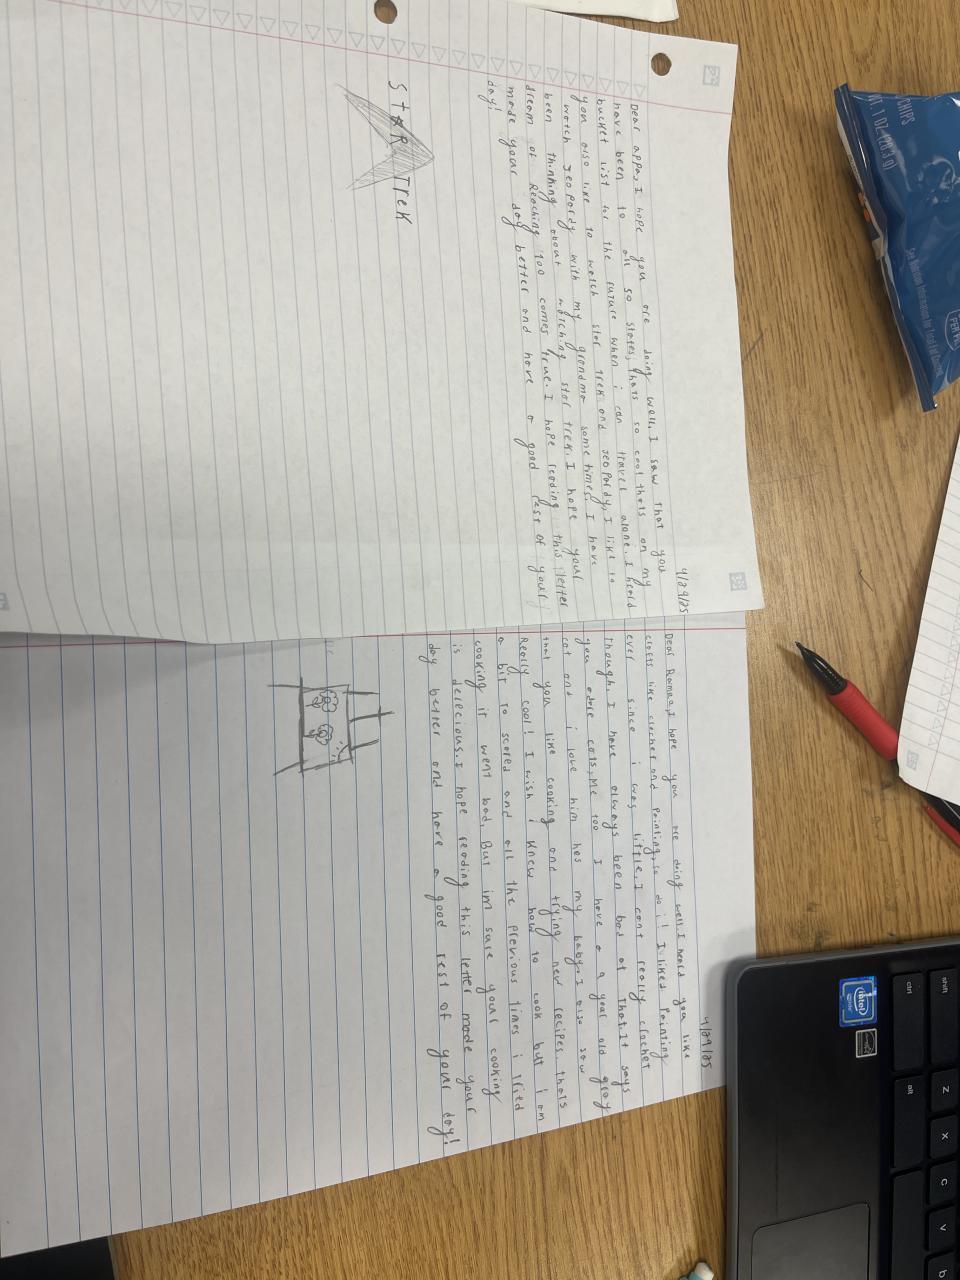 4/29/25
Dear appa, I hope you are doing well. I saw that you
have been to all 50 states, thats so cool thats on my
bucket list for the future when i can travel alone. I heard
you also like to watch star trek and jeopardy, I like to
watch jeopardy with my grandma some times. I have
been thinking about watching star trek. I hope your
dream of Reaching 100 comes true. I hope reading this letter
made your day better and have a good rest of your
day!
StaR TreK
4/29/25
Dear I hope you are doing well. I heard you like
crafts like and Painting, so do i! I liked Painting
ever since i was little. I cant really crochet
though, I have always been bad at that. It says
you adore cats, Me too I have a 9 year old gray
cat and i love him hes my baby. I also saw
that you like cooking and trying new recipes thats
Really cool! I wish i knew how to cook but I am
a bit to scared and all the previous times i tried
cooking it went bad. But im sure your cooking
is derecious. I hope reading this letter made your
day better and have a good rest of your day!
CHIPS
WT. 1 OZ (28.3 g)
See Nutrition Information for
PER
intel
shift
ctrl
alt
Z
X
C
V
b